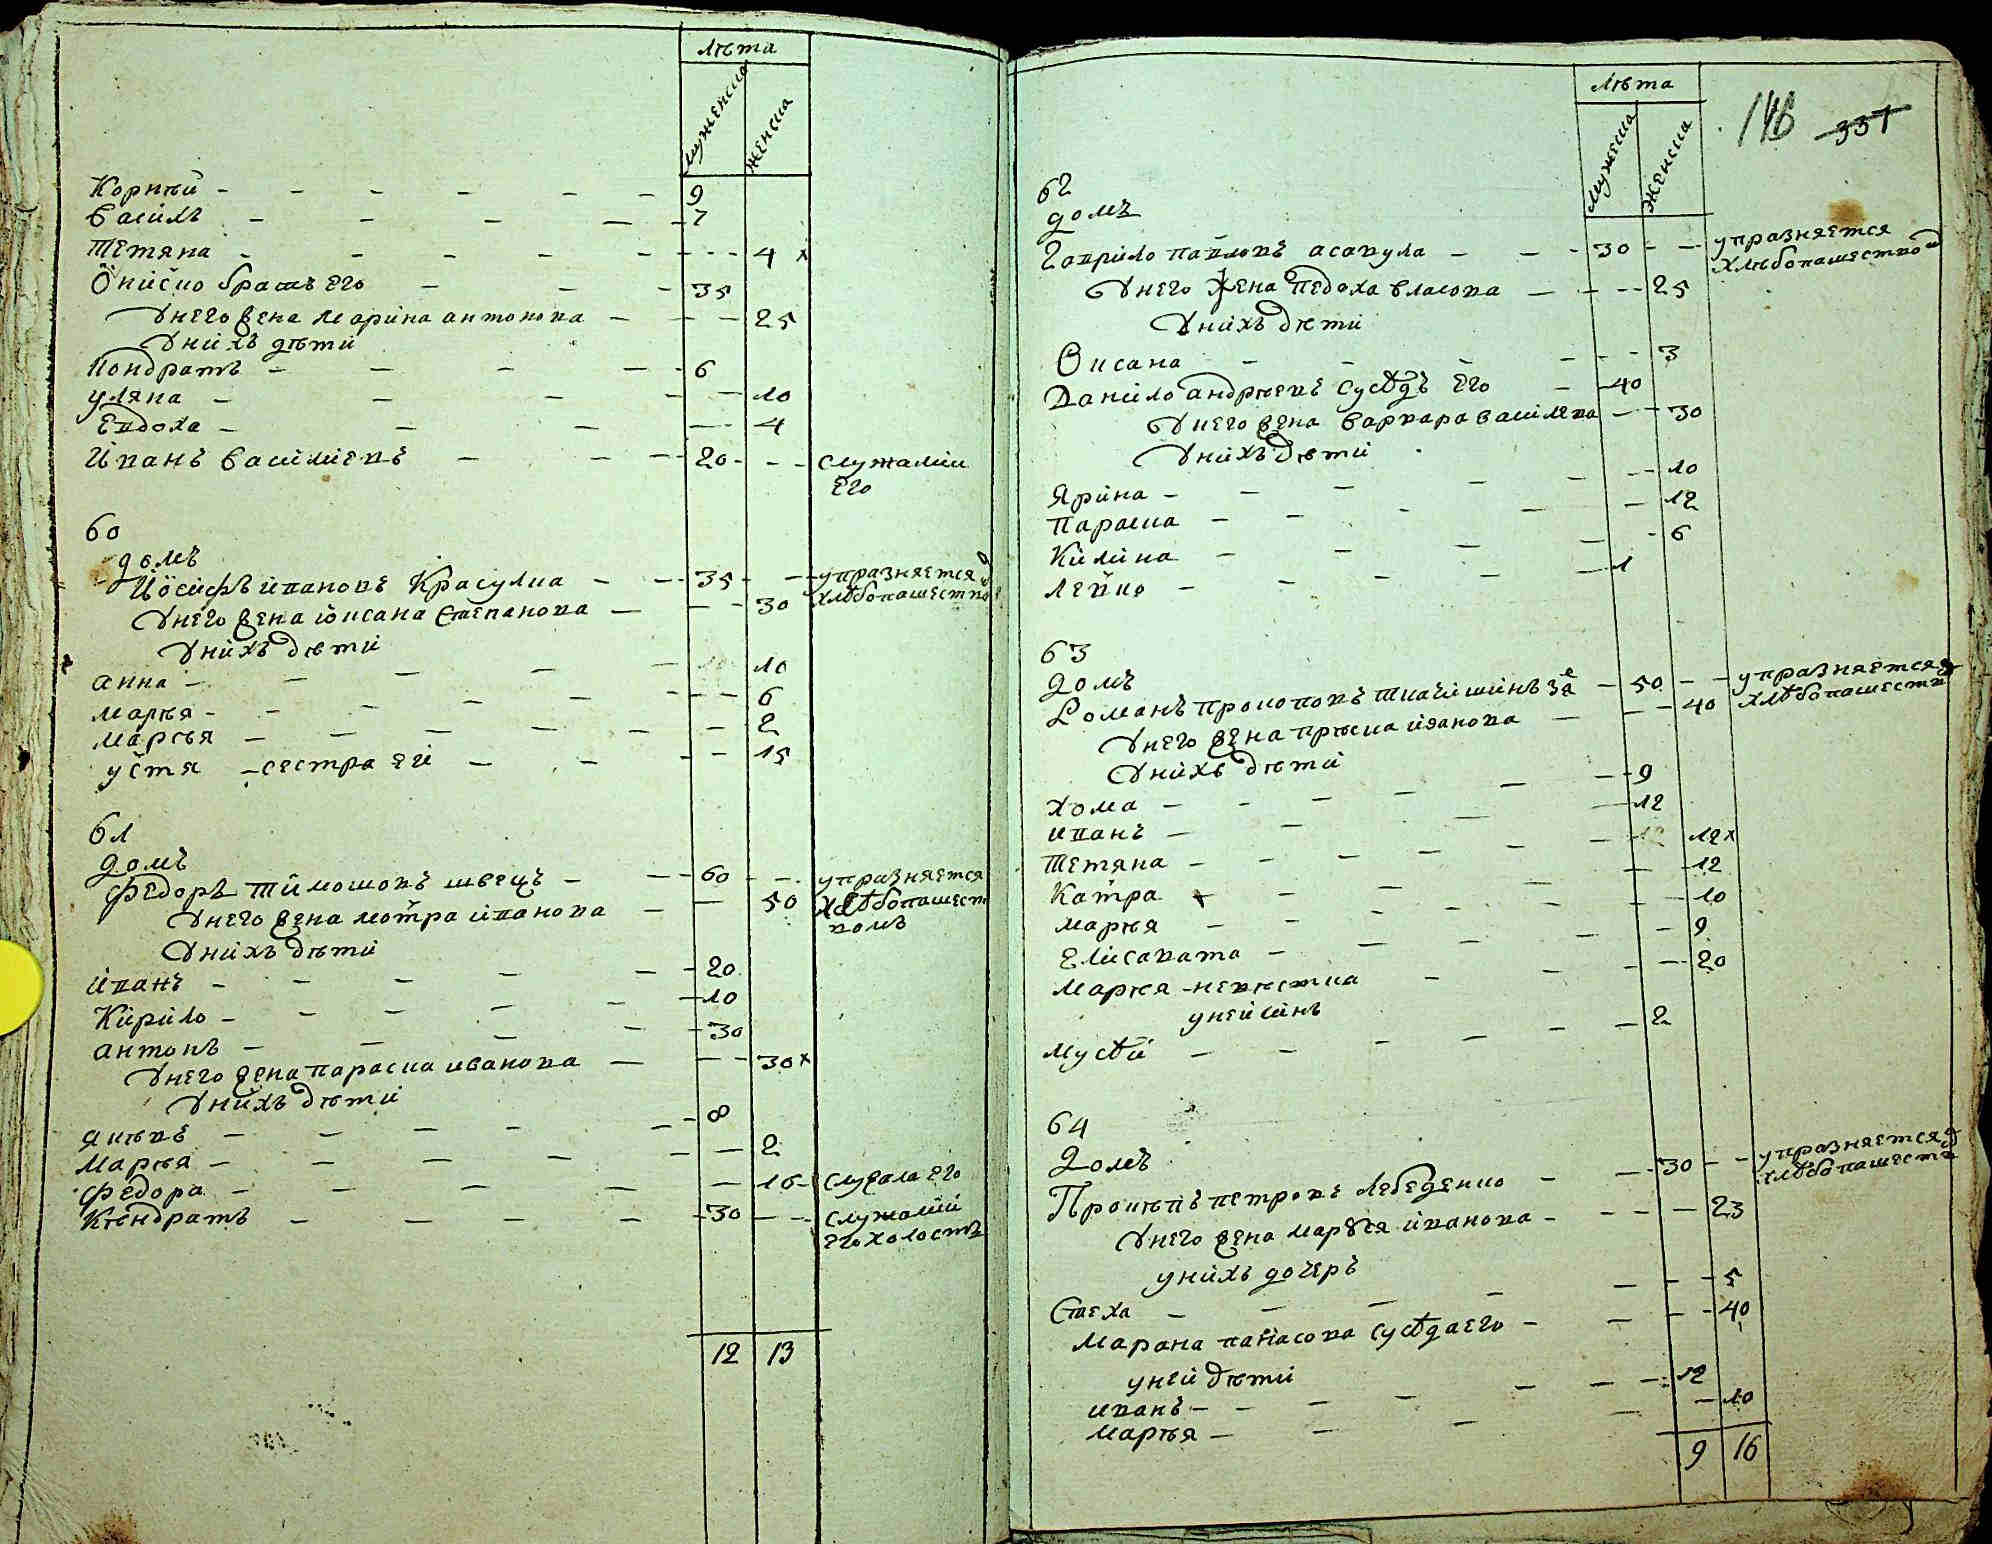 лѣта
мужеска
женска
Корнѣй - 9
Василь - 7
Тетяна - 4 х
Ониско братъ его - 35
У него жена Марина антонова - 25
У нихъ дѣти
Кондратъ - 6
уляна - 10
Евдоха - 4
Иванъ василиевъ - 20 - служащий
его
60
домъ
Йосифъ ивановъ Красулка - 35 - упражняется
хлѣбопашество
У него жена юксана Степанова - 30
У нихъ дѣти
анна - 10
марѣя - 6
марѣя - 2
устя - сестра ей - 15
61
домъ
Федоръ тимошовъ швецъ - 60 - упражняется
У него жена мотра иванова - 50 хлѣбопашест
вомъ
У нихъ дѣти
иванъ - 20
Кирило - 10
антонъ - 30
У него жена параска иванова - 30 х
У нихъ дѣти
якѣвъ - 8
Марѣя - 2
федора - 16 - служала его
Кѣндратъ - 30 - служащий
его холостъ
12 13
лѣта
мужеска
женска
146 331
62
домъ
Гаврило павловъ асавула - 30 - упражняется
хлѣбопашество
У него жена Певдоха власова - 25
У нихъ дѣти
Оксана - 3
Данило андрѣевъ сусѣдъ его - 40
У него жена варвара василева - 30
У нихъ дѣти
Ярина - 10
Параска - 12
Килина - 6
Левко - 1
63
домъ
Романъ прокоповъ ткачишинъ зя - 50 - упражняется
У него жена прѣска иванова - 40 хлѣбопашеств
У нихъ дѣти
хома - 9
иванъ - 12
Тетяна - 12 х
Катра - 12
марѣя - 10
Елисавата - 9
марѣя - невѣстка - 20
у ней синъ
Мусѣй - 2
64
Домъ
Прокѣпъ петровъ Лебеденко - 30 - упражняется
хлѣбопашеств
У него жена маруся иванова - 23
у нихъ дочеръ
Стеха - 5
Марана панасова сусѣда его - 40
у ней дѣти
иванъ - 12
марѣя - 10
9 16